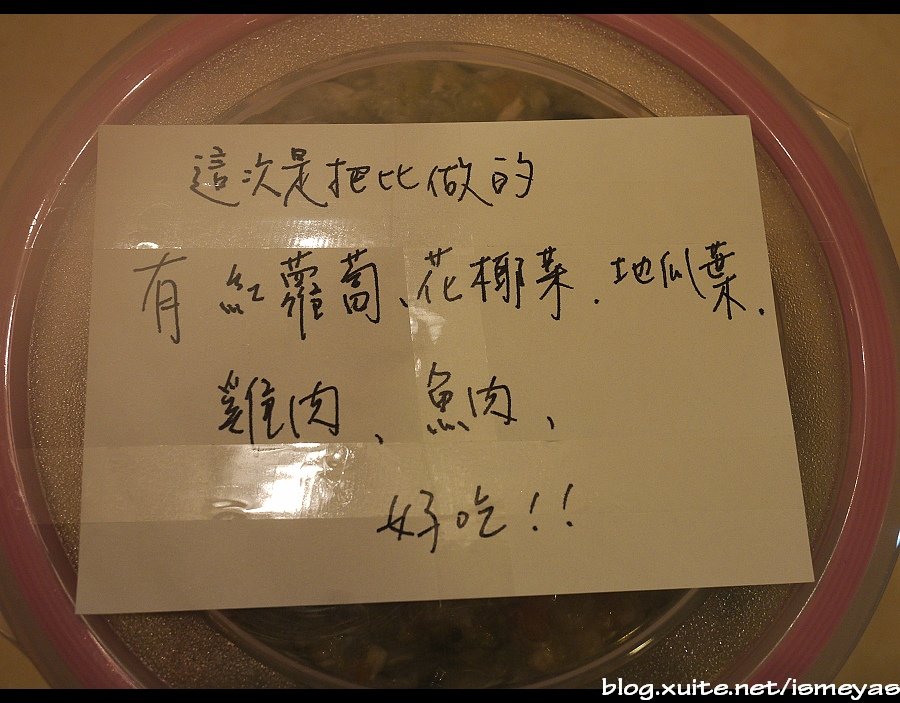 這次是把比做的
有紅蘿蔔、花椰菜.地瓜葉.
雞肉、魚肉、
好吃!!
blog.xuite.net/ismeyas